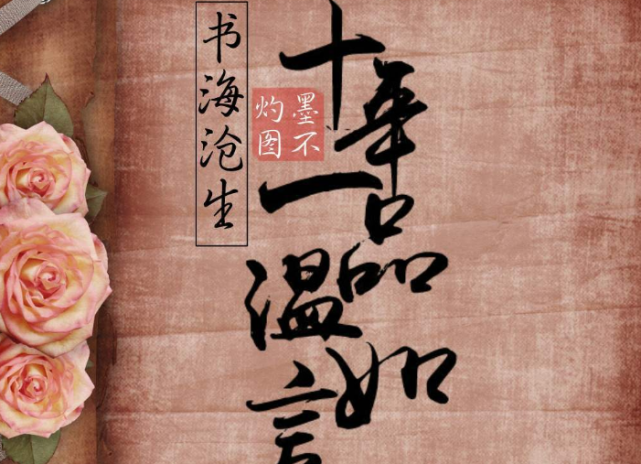 书海沧生
墨不
灼图
十年一品温如言